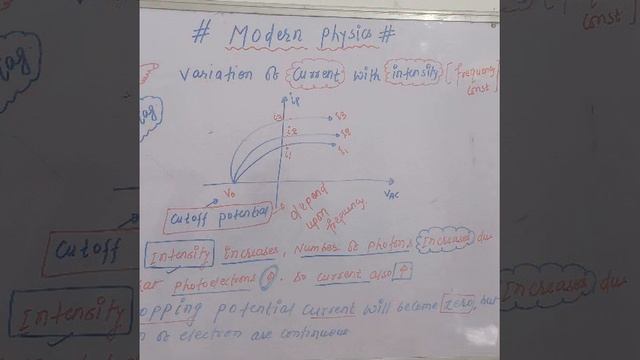 # Modern physics #
Variation of current with intensity [frequency
const]
ip
i3 I3
i2 I2
i1 I1
V0
VAC
cutoff potential
depend
upon
frequency.
Intensity increases, Number of photons Increases du
photoelectrons ↑. So current also ↑
opping potential current will become zero, but
of electron are continuous